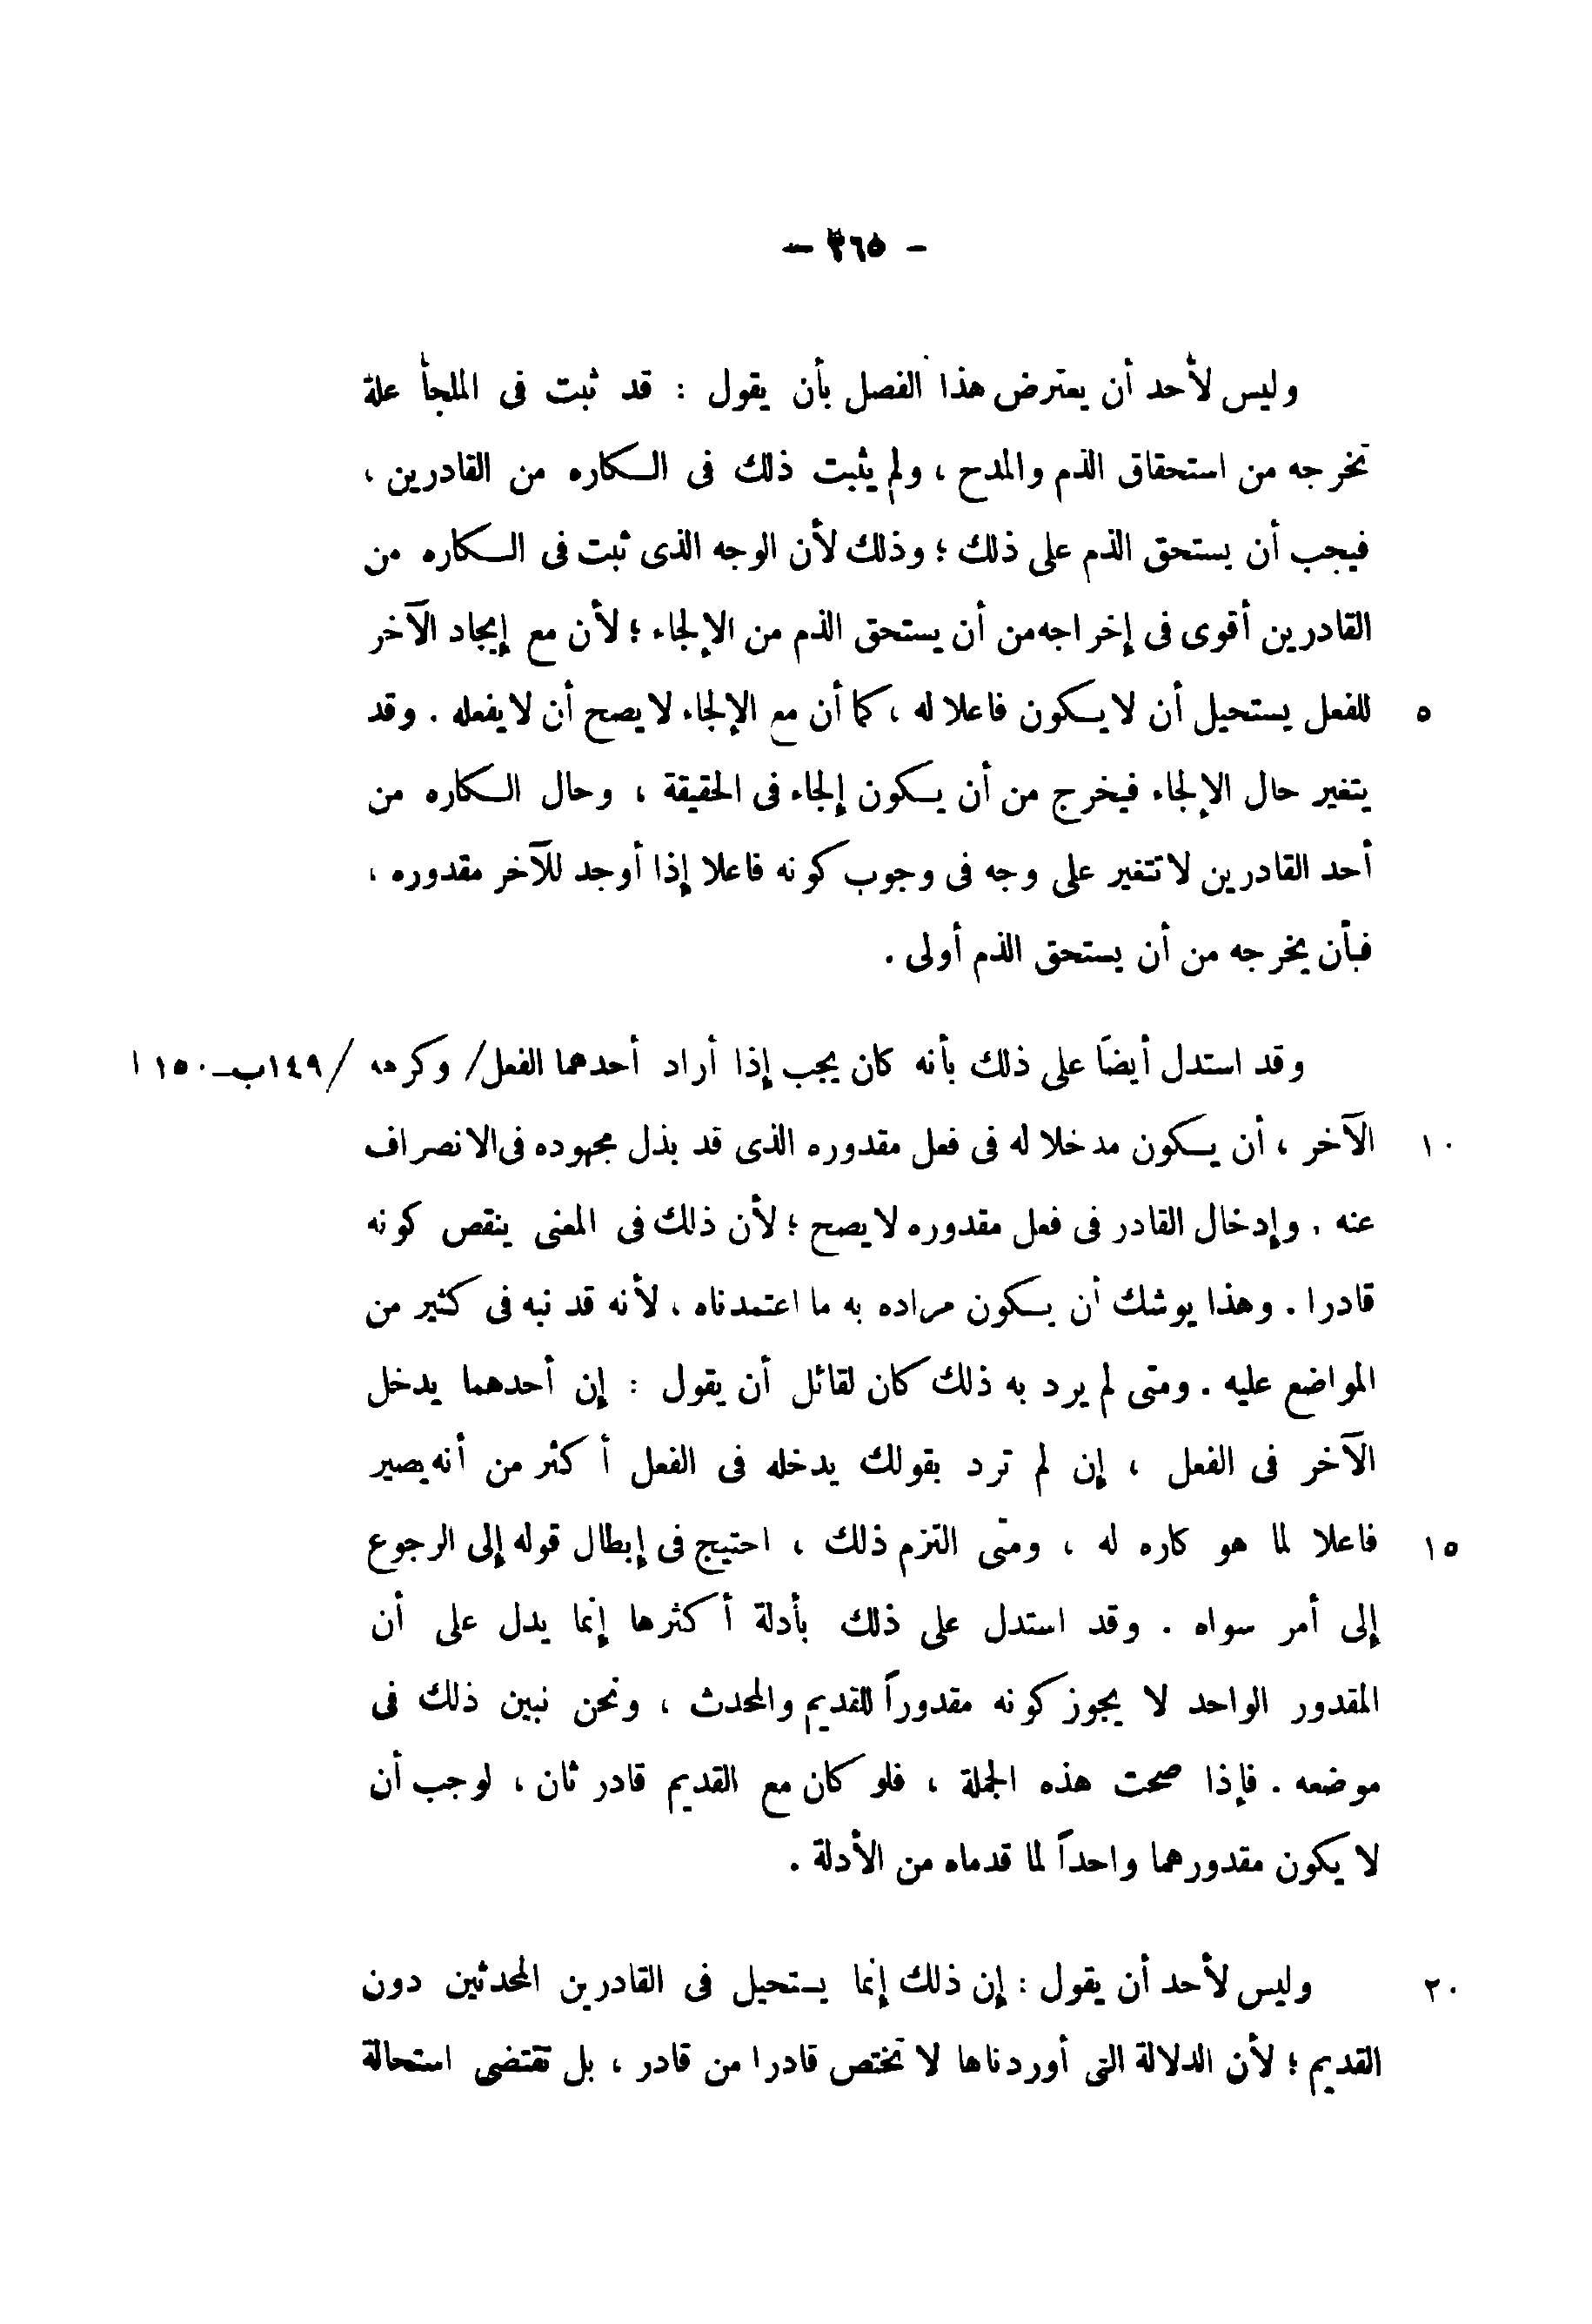 — ٢٦٥ —
وليس لأحد أن يعترض هذا الفصل بأن يقول : قد ثبت فى الملجأ علة
تخرجه من استحقاق الذم والمدح ، ولم يثبت ذلك فى الكاره من القادرين ،
فيجب أن يستحق الذم على ذلك ؛ وذلك لأن الوجه الذى ثبت فى الكاره من
القادرين أقوى فى إخراجه من أن يستحق الذم من الإلجاء ؛ لأن مع إيجاد الآخر
٥ للفعل يستحيل أن لا يكون فاعلا له ، كما أن مع الإلجاء لا يصح أن لا يفعله . وقد
يتغير حال الإلجاء فيخرج من أن يكون إلجاء فى الحقيقة ، وحال الكاره من
أحد القادرين لا تتغير على وجه فى وجوب كونه فاعلا إذا أوجد للآخر مقدوره ،
فبأن يخرجه من أن يستحق الذم أولى .
وقد استدل أيضاً على ذلك بأنه كان يجب إذا أراد أحدهما الفعل/ وكرهه /١٤٩ب—١٥٠ ا
١٠ الآخر ، أن يكون مدخلا له فى فعل مقدوره الذى قد بذل مجهوده فى الانصراف
عنه . وإدخال القادر فى فعل مقدوره لا يصح ؛ لأن ذلك فى المعنى ينقص كونه
قادرا . وهذا يوشك أن يكون مراده به ما اعتمدناه ، لأنه قد نبه فى كثير من
المواضع عليه . ومتى لم يرد به ذلك كان لقائل أن يقول : إن أحدهما يدخل
الآخر فى الفعل ، إن لم ترد بقولك يدخله فى الفعل أكثر من أنه يصير
١٥ فاعلا لما هو كاره له ، ومتى التزم ذلك ، احتيج فى إبطال قوله إلى الرجوع
إلى أمر سواه . وقد استدل على ذلك بأدلة أكثرها إنما يدل على أن
المقدور الواحد لا يجوز كونه مقدوراً للقديم والمحدث ، ونحن نبين ذلك فى
موضعه . فإذا صحت هذه الجملة ، فلو كان مع القديم قادر ثان ، لوجب أن
لا يكون مقدورهما واحداً لما قدماه من الأدلة .
٢٠ وليس لأحد أن يقول : إن ذلك إنما يستحيل فى القادرين المحدثين دون
القديم ؛ لأن الدلالة التى أوردناها لا تختص قادرا من قادر ، بل تقتضى استحالة